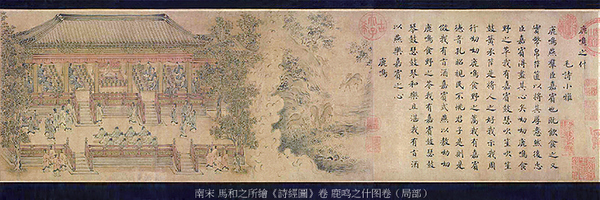 鹿鳴之什
毛詩小雅
鹿鳴燕羣臣嘉賓也既飲食之又
實幣帛筐篚以將其厚意然後忠
臣嘉賓得盡其心矣呦呦鹿鳴食
野之苹我有嘉賓鼓瑟吹笙吹笙
鼓簧承筐是將人之好我示我周
行呦呦鹿鳴食野之蒿我有嘉賓
德音孔昭視民不恌君子是則是
傚我有旨酒嘉賓式燕以敖呦呦
鹿鳴食野之芩我有嘉賓鼓瑟鼓
琴鼓瑟鼓琴和樂且湛我有旨酒
以燕樂嘉賓之心
鹿鳴
南宋 馬和之所繪《詩經圖》卷 鹿鳴之什图卷（局部）